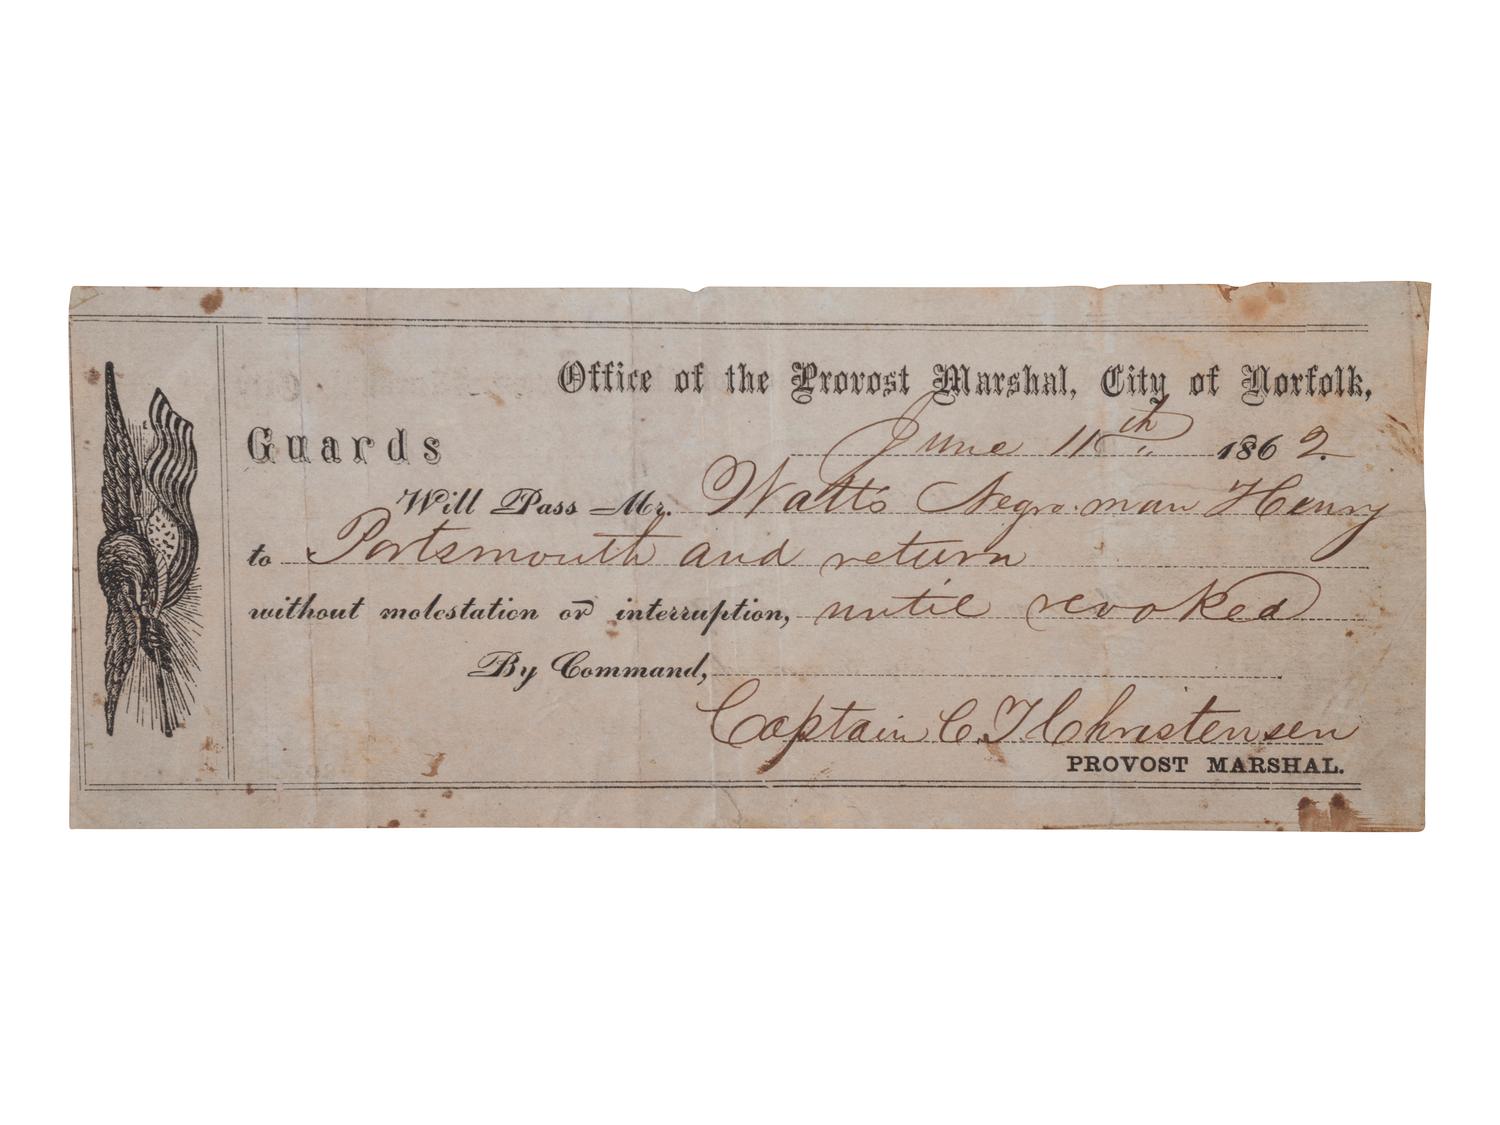 Office of the Provost Marshal, City of Norfolk,
June 11th 1862.
Guards
Will Pass Mr. Watts Negro man Henry
to Portsmouth and return
without molestation or interruption, until revoked
By Command,
Captain C. T Christensen
PROVOST MARSHAL.